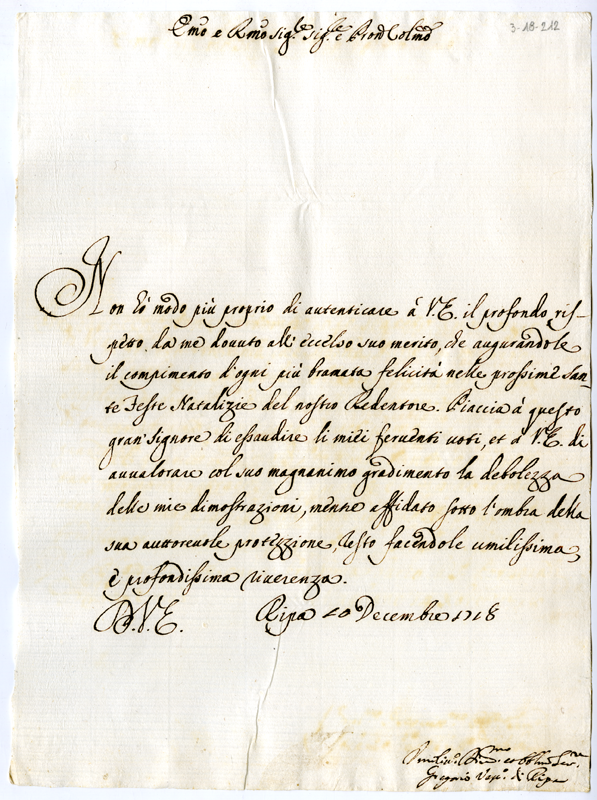 Emo e Rmo Sig.re Sig.re e Pron Colmo
3-18-212
Non hò modo più proprio di autenticare à V.E. il profondo ris-
petto da me dovuto all'eccelso suo merito, che augurandole
il compimento d'ogni più bramata felicità nelle prossime San-
te Feste Natalizie del nostro Redentore. Piaccia à questo
gran Signore di essaudire li miei ferventi voti, et à V.E. di
avvalorare col suo magnanimo gradimento la debolezza
delle mie dimostrazioni, mentre affidato sotto l'ombra della
sua auttorevole protezzione, resto facendole umilissima,
e profondissima riverenza.
D.V.E. Ripa 20 Decembre 1718
Umiliss.o Div.mo et Obblmo Ser.re
Gregorio Vesc.o di Ripa